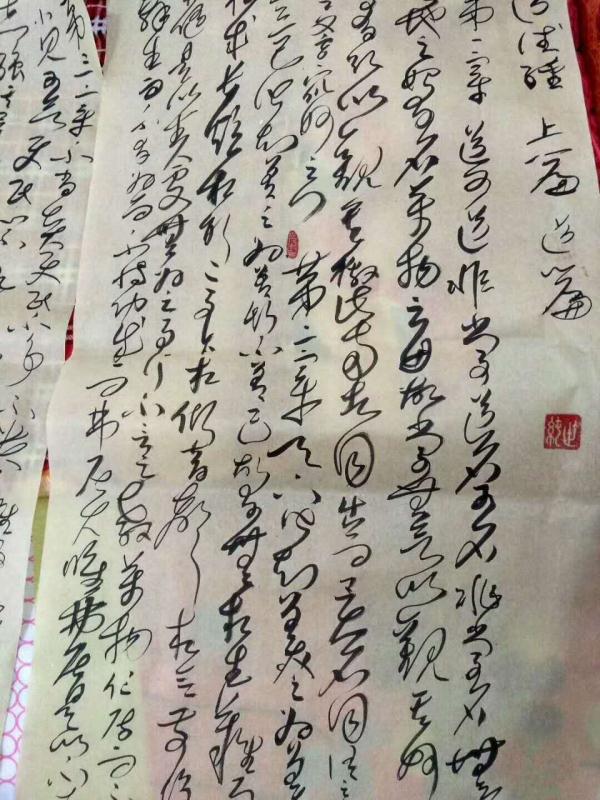 道德經 上篇 道篇
第一章 道可道非常道名可名非常名無名
地之始有名萬物之母故常無欲以觀其妙
有欲以觀其徼此兩者同出而異名同謂之
又玄眾妙之门 第二章 天下皆知美之為美
惡已皆知善之為善斯不善已故有無相生難易
相成長短相形高下相傾音聲相和前後
隨是以聖人處無為之事行不言之教萬物作焉而不
辭生而不有為而不恃功成而弗居夫唯弗居是以不
第三章不尚賢使民不爭不貴難得
不見可欲使民心不
志強其